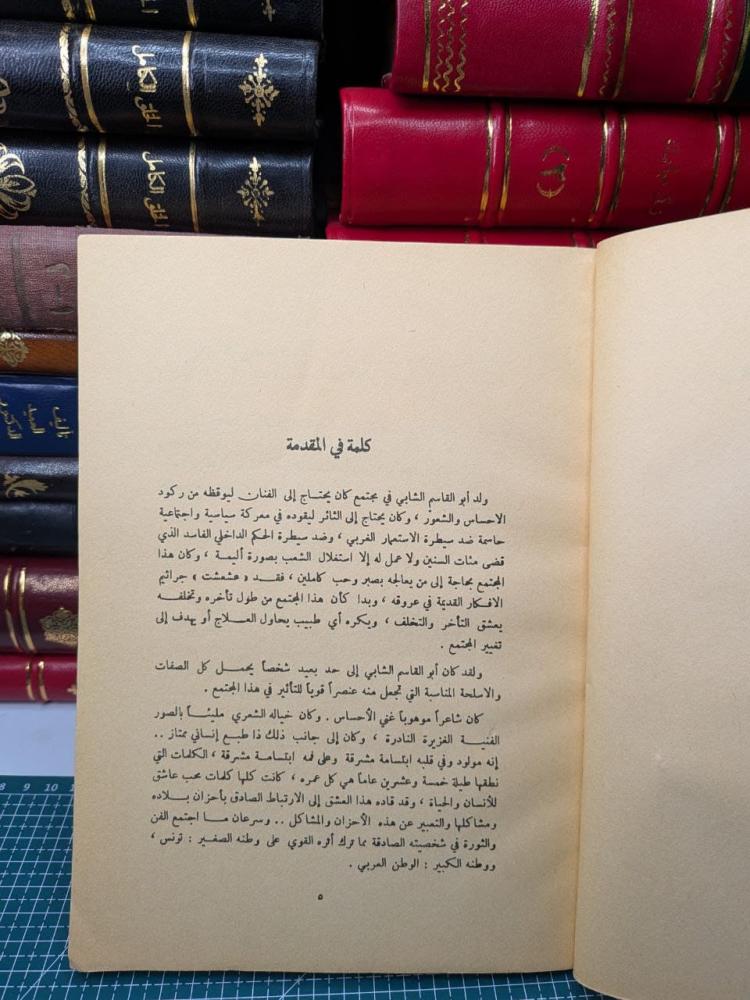 الحل الكامل
الحل الكامل
تأليف
السيد
الدكتور
كلمة في المقدمة
ولد أبو القاسم الشابي في مجتمع كان يحتاج إلى الفنان ليوقظه من ركود
الاحساس والشعور ، وكان يحتاج إلى الثائر ليقوده في معركة سياسية واجتماعية
حاسمة ضد سيطرة الاستعمار الغربي ، وضد سيطرة الحكم الداخلي الفاسد الذي
قضى مئات السنين ولا عمل له إلا استغلال الشعب بصورة أليمة ، وكان هذا
المجتمع بحاجة إلى من يعالجه بصبر وحب كاملين ، فقد « عشعشت » جراثيم
الافكار القديمة في عروقه ، وبدا كأن هذا المجتمع من طول تأخره وتخلفه
يعشق التأخر والتخلف ، ويكره أي طبيب يحاول العلاج أو يهدف إلى
تغيير المجتمع .
ولقد كان أبو القاسم الشابي إلى حد بعيد شخصاً يحمل كل الصفات
والاسلحة المناسبة التي تجعل منه عنصراً قوياً للتأثير في هذا المجتمع .
كان شاعراً موهوباً غني الأحساس . وكان خياله الشعري مليئاً بالصور
الفنية الغزيرة النادرة ، وكان إلى جانب ذلك ذا طبع إنساني ممتاز ..
إنه مولود وفي قلبه ابتسامة مشرقة وعلى فمه ابتسامة مشرقة ، الكلمات التي
نطقها طيلة خمسة وعشرين عاماً هي كل عمره ، كانت كلها كلمات محب عاشق
للأنسان والحياة ، وقد قاده هذا العشق إلى الارتباط الصادق بأحزان بلاده
ومشاكلها والتعبير عن هذه الأحزان والمشاكل .. وسرعان ما اجتمع الفن
والثورة في شخصيته الصادقة مما ترك أثره القوي على وطنه الصغير : تونس ،
ووطنه الكبير : الوطن العربي .
٥
8 9 10